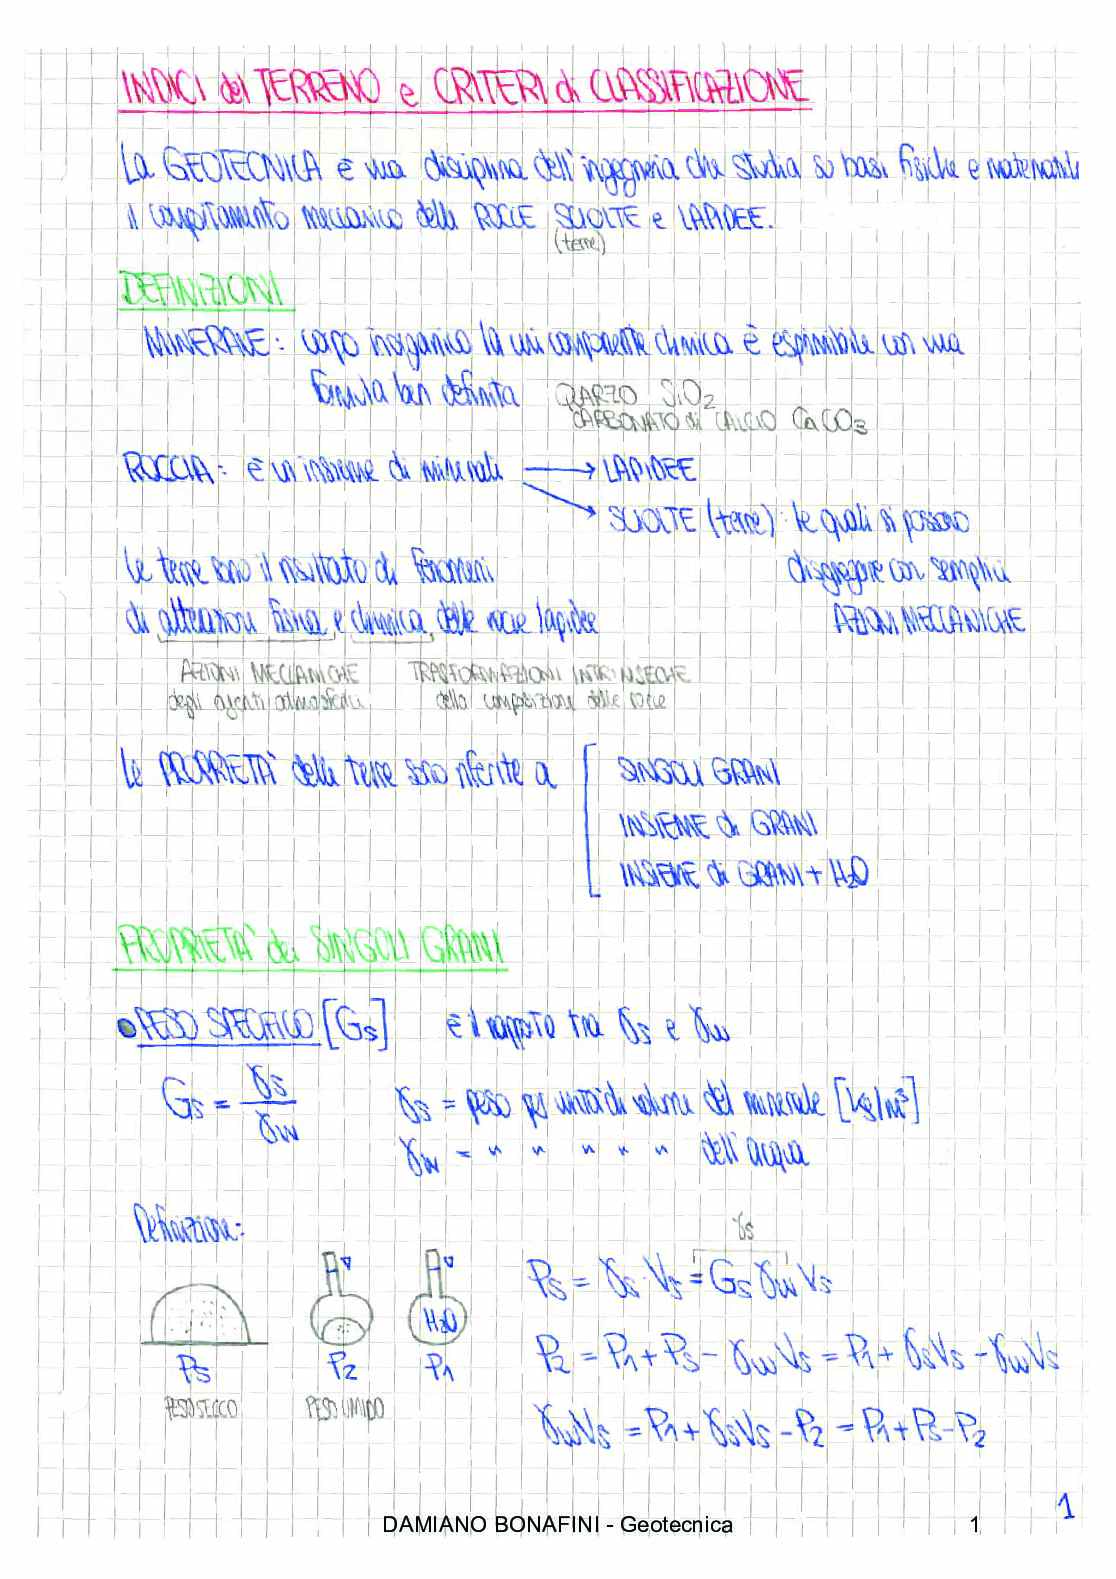 INDICI del TERRENO e CRITERI di CLASSIFICAZIONE
La GEOTECNICA è una disciplina dell'ingegneria che studia su basi fisiche e matematiche
il comportamento meccanico delle ROCCE SCIOLTE e LAPIDEE.
(terre)
DEFINIZIONI
MINERALE: corpo inorganico la cui componente chimica è esprimibile con una
formula ben definita QUARZO SiO2
CARBONATO di CALCIO CaCO3
ROCCIA: è un insieme di minerali → LAPIDEE
→ SCIOLTE (terre): le quali si possono
Le terre sono il risultato di fenomeni disgregare con semplici
di alterazioni fisica e chimica delle rocce lapidee AZIONI MECCANICHE
AZIONI MECCANICHE TRASFORMAZIONI INTRINSECHE
degli agenti atmosferici della composizione delle rocce
Le PROPRIETÀ delle terre sono riferite a SINGOLI GRANI
INSIEME di GRANI
INSIEME di GRANI + H2O
PROPRIETÀ dei SINGOLI GRANI
• PESO SPECIFICO [Gs] è il rapporto tra γs e γw
Gs = γs/γw γs = peso per unità di volume del minerale [kg/m³]
γw = " " " " " dell'acqua
Definizione:
γs
Ps = γs · Vs = Gs γw Vs
H2O
P2 = P1 + Ps - γwVs = P1 + γsVs - γwVs
Ps P2 P1
PESO SECCO PESO UMIDO
γwVs = P1 + γsVs - P2 = P1 + Ps - P2
1
DAMIANO BONAFINI - Geotecnica 1